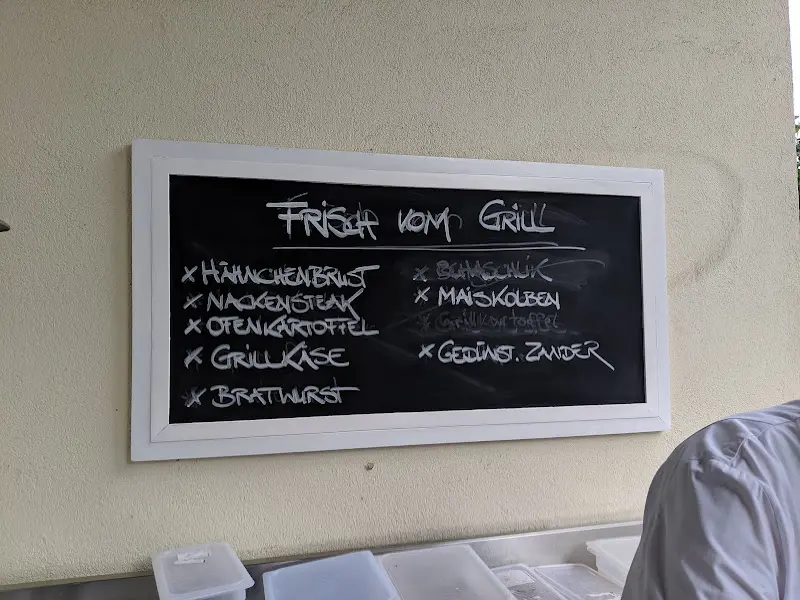 FRISCH VOM GRILL
x HÄHNCHENBRUST
x NACKENSTEAK
x OFENKARTOFFEL
x GRILLKÄSE
x BRATWURST
x SCHASCHLIK
x MAISKOLBEN
x Grillkartoffel
x GEDÜNST. ZANDER